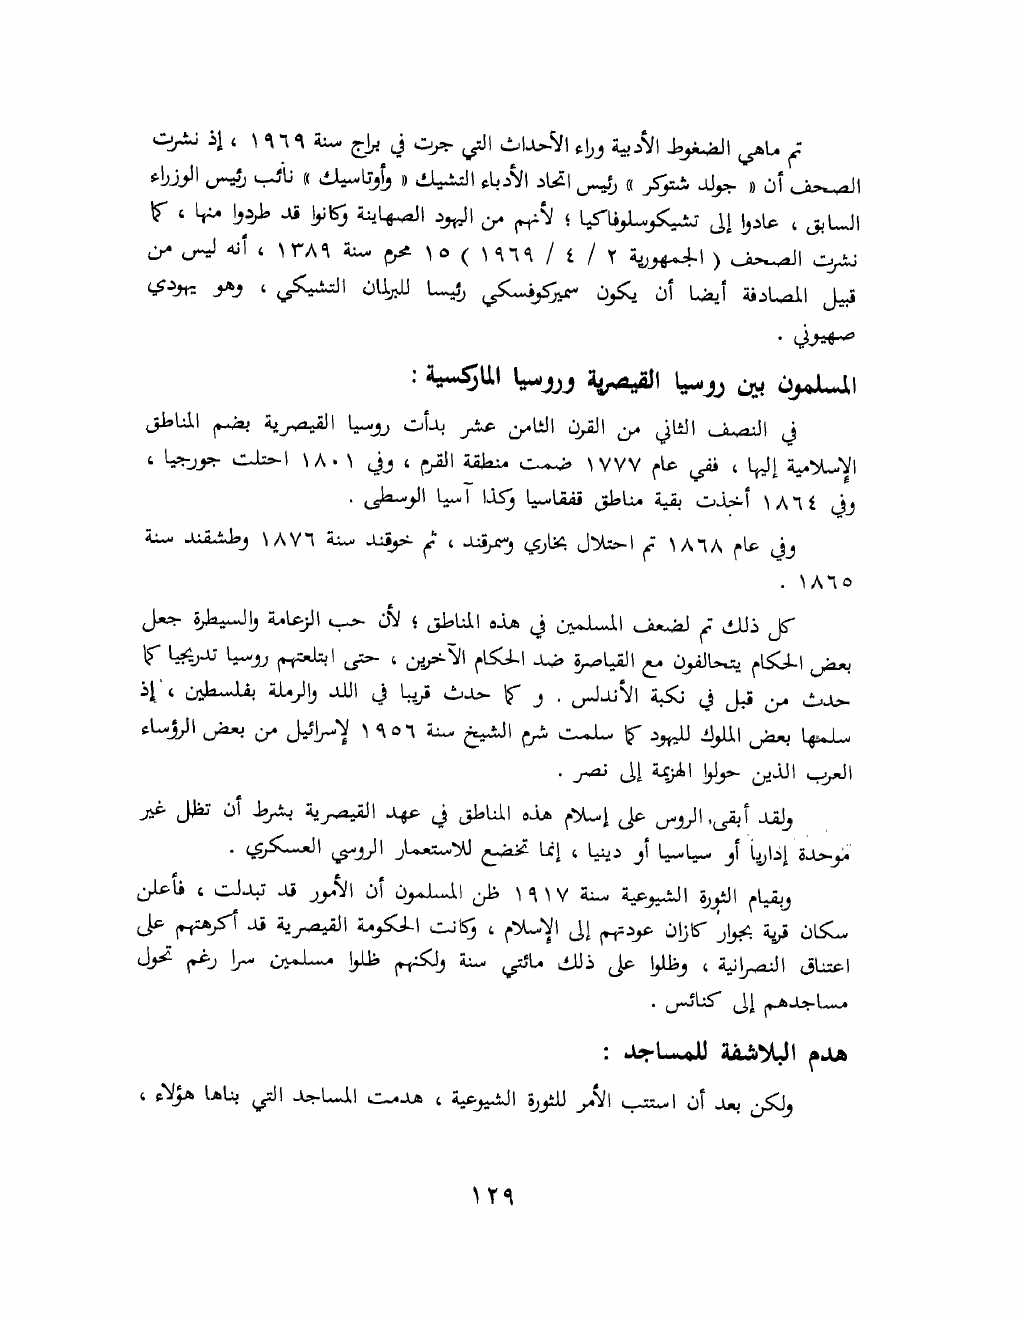 تم ماهي الضغوط الأدبية وراء الأحداث التي جرت في براج سنة ١٩٦٩ ، إذ نشرت
الصحف أن « جولد شتوكر » رئيس اتحاد الأدباء التشيك « وأوتاسيك » نائب رئيس الوزراء
السابق ، عادوا إلى تشيكوسلوفاكيا ؛ لأنهم من اليهود الصهاينة وكانوا قد طردوا منها ، كما
نشرت الصحف ( الجمهورية ٢ / ٤ / ١٩٦٩ ) ١٥ محرم سنة ١٣٨٩ ، أنه ليس من
قبيل المصادفة أيضا أن يكون سميركوفسكي رئيسا للبرلمان التشيكي ، وهو يهودي
صهيوني .
المسلمون بين روسيا القيصرية وروسيا الماركسية :
في النصف الثاني من القرن الثامن عشر بدأت روسيا القيصرية بضم المناطق
الإسلامية إليها ، ففي عام ١٧٧٧ ضمت منطقة القرم ، وفي ١٨٠١ احتلت جورجيا ،
وفي ١٨٦٤ أخذت بقية مناطق قفقاسيا وكذا آسيا الوسطى .
وفي عام ١٨٦٨ تم احتلال بخاري وسمرقند ، ثم خوقند سنة ١٨٧٦ وطشقند سنة
١٨٦٥ .
كل ذلك تم لضعف المسلمين في هذه المناطق ؛ لأن حب الزعامة والسيطرة جعل
بعض الحكام يتحالفون مع القياصرة ضد الحكام الآخرين ، حتى ابتلعتهم روسيا تدريجيا كما
حدث من قبل في نكبة الأندلس . و كما حدث قريبا في اللد والرملة بفلسطين ، إذ
سلمها بعض الملوك لليهود كما سلمت شرم الشيخ سنة ١٩٥٦ لإسرائيل من بعض الرؤساء
العرب الذين حولوا الهزيمة إلى نصر .
ولقد أبقى الروس على إسلام هذه المناطق في عهد القيصرية بشرط أن تظل غير
موحدة إداريا أو سياسيا أو دينيا ، إنما تخضع للاستعمار الروسي العسكري .
وبقيام الثورة الشيوعية سنة ١٩١٧ ظن المسلمون أن الأمور قد تبدلت ، فأعلن
سكان قرية بجوار كازان عودتهم إلى الإسلام ، وكانت الحكومة القيصرية قد أكرهتهم على
اعتناق النصرانية ، وظلوا على ذلك مائتي سنة ولكنهم ظلوا مسلمين سرا رغم تحول
مساجدهم إلى كنائس .
هدم البلاشفة للمساجد :
ولكن بعد أن استتب الأمر للثورة الشيوعية ، هدمت المساجد التي بناها هؤلاء ،
١٢٩